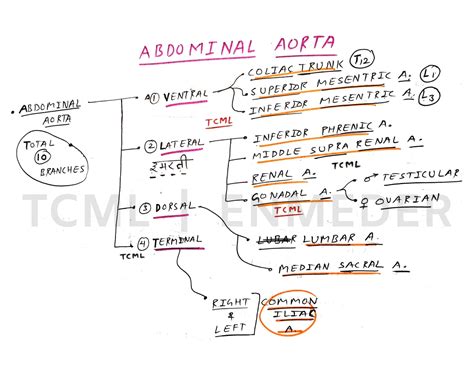 ABDOMINAL AORTA
ABDOMINAL
AORTA
TOTAL
10
BRANCHES
① VENTRAL
COLIAC TRUNK T12
SUPERIOR MESENTRIC A. L1
INFERIOR MESENTRIC A. L3
TCML
② LATERAL
INFERIOR PHRENIC A.
MIDDLE SUPRA RENAL A.
TCML
RENAL A.
GONADAL A.
♂ TESTICULAR
♀ OVARIAN
TCML
TCML | ENMEDER
③ DORSAL
LUBAR LUMBAR A.
MEDIAN SACRAL A.
④ TERMINAL
TCML
RIGHT
&
LEFT
COMMON
ILIAC
A.